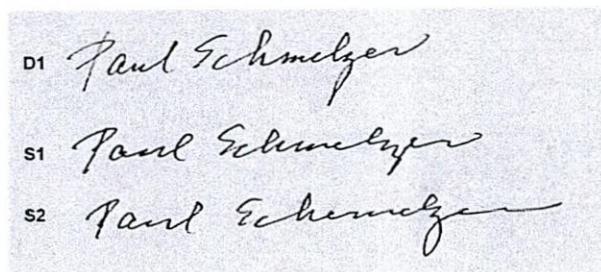 D1 Paul Schmelzer
S1 Paul Schmelzer
S2 Paul Schemelzer